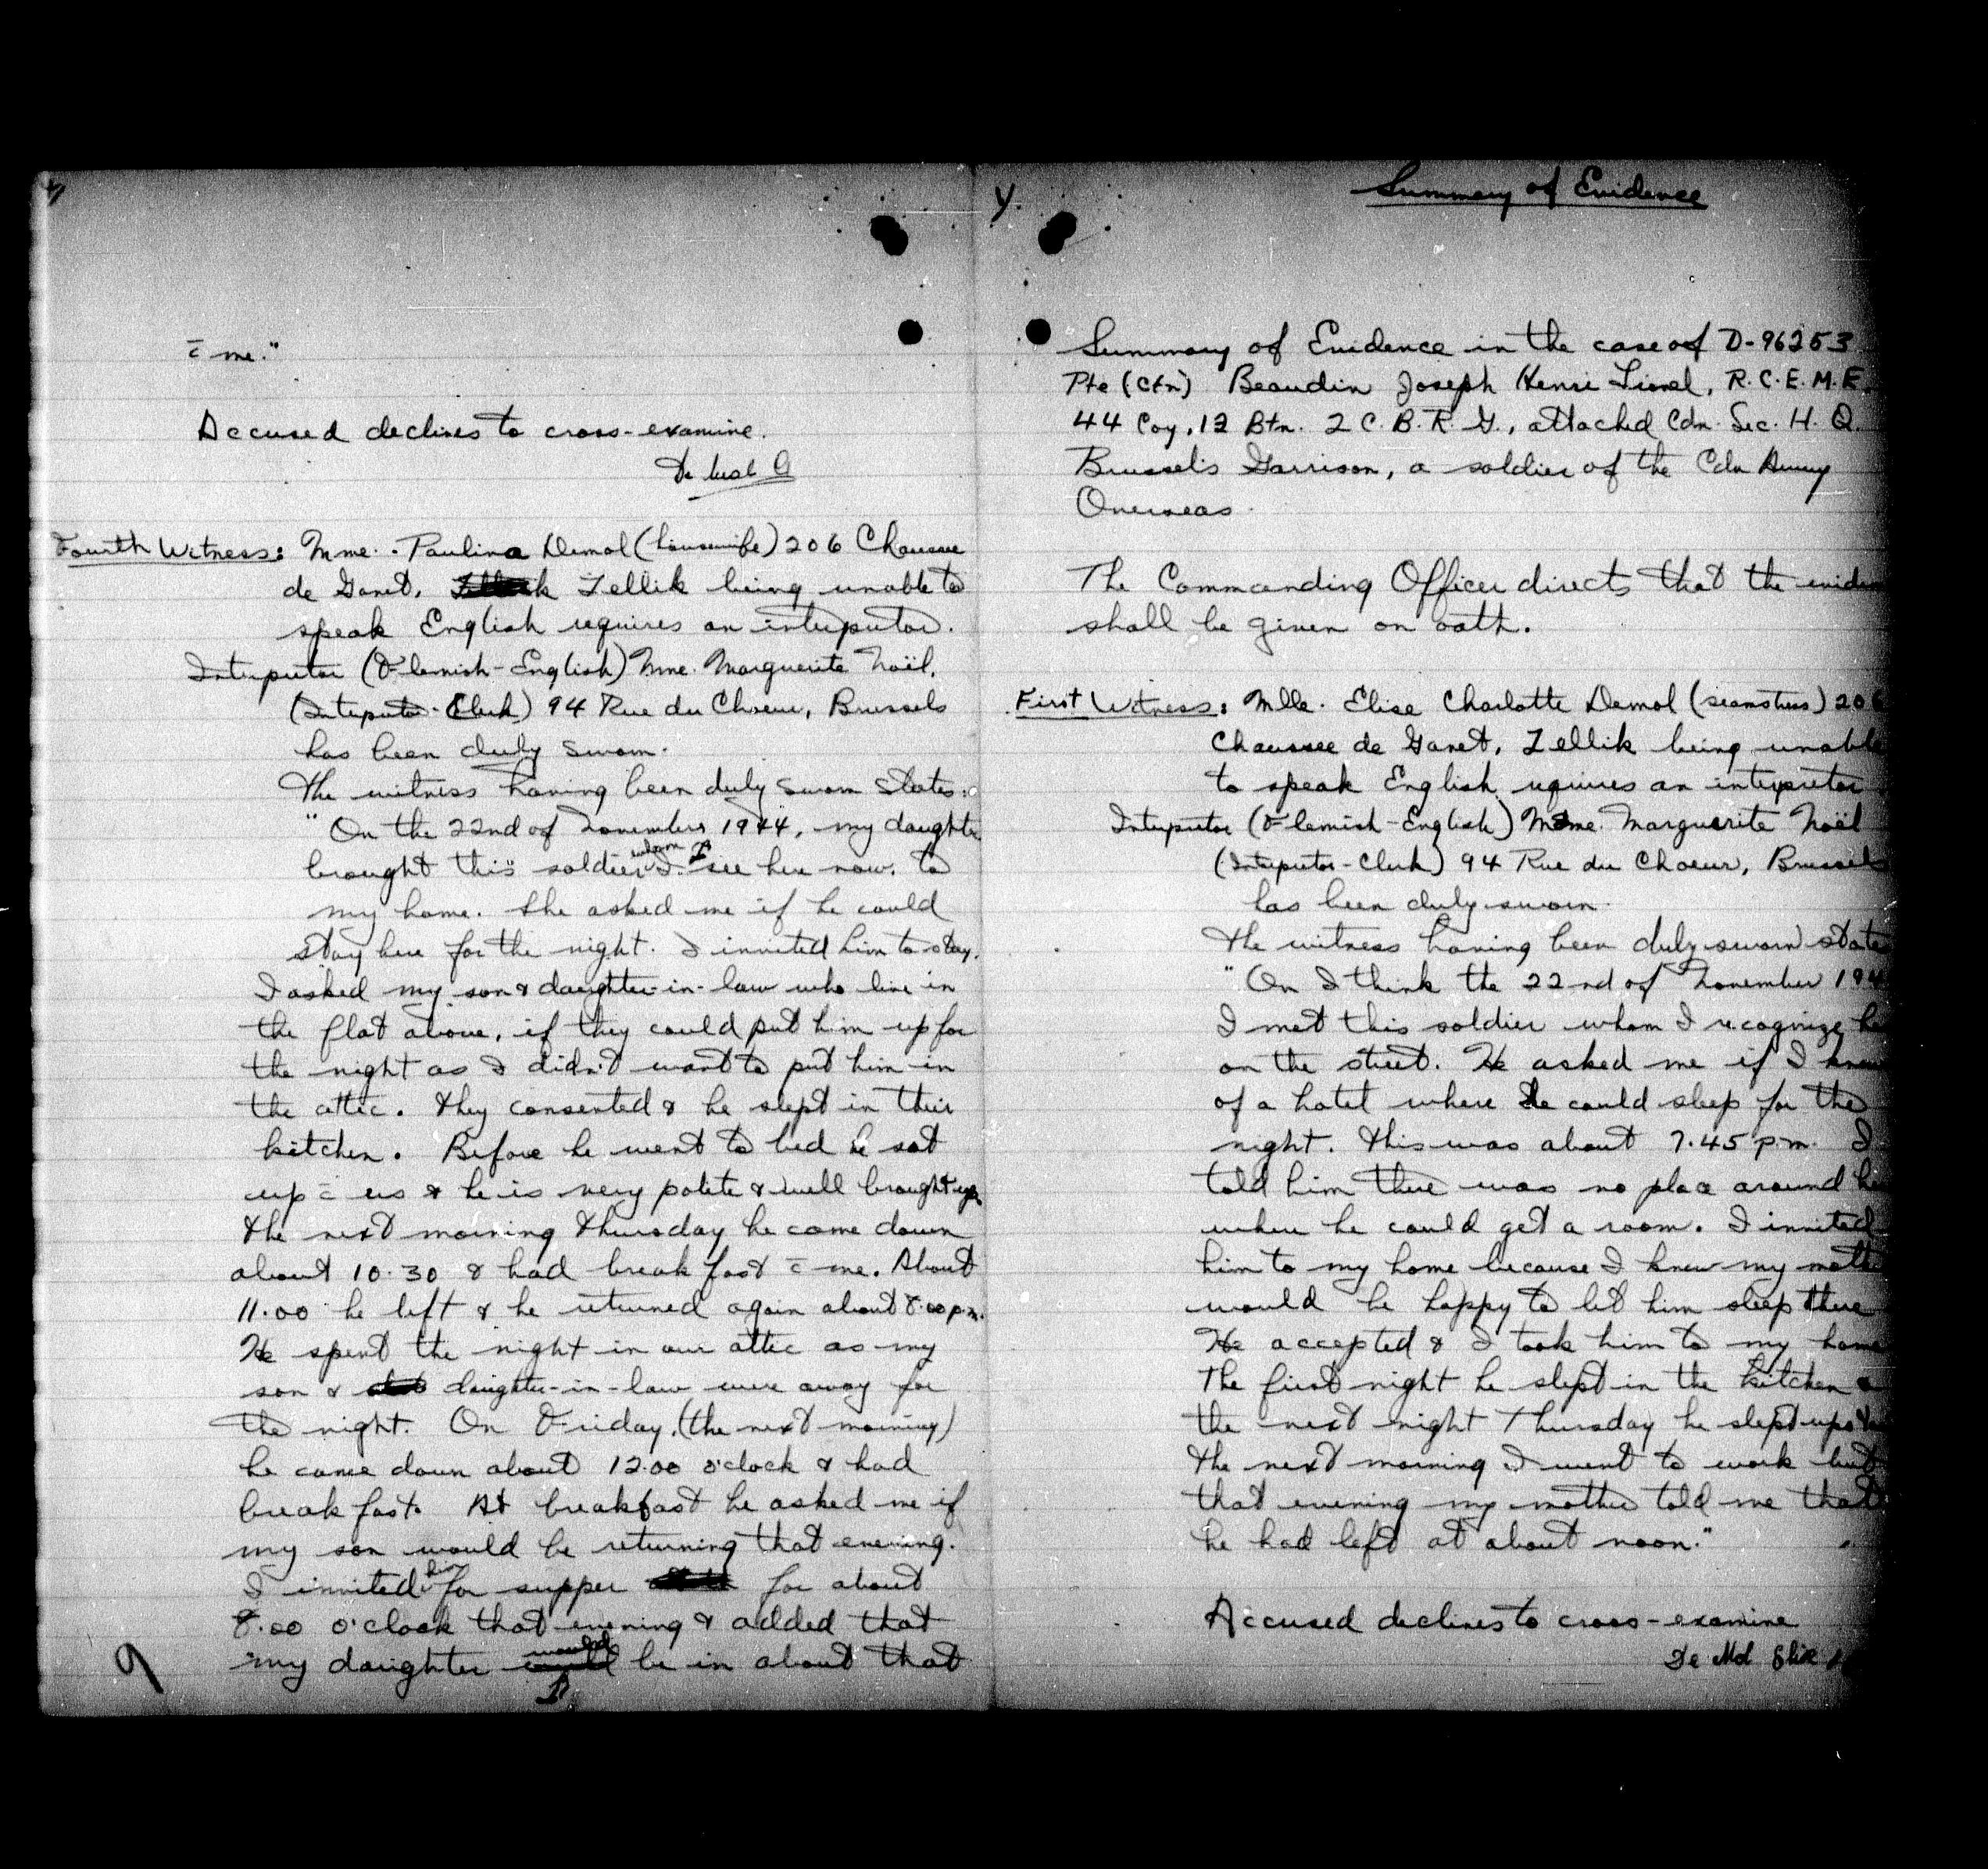 c̄ me."
Accused declines to cross-examine.
De
Fourth Witness: Mme. Paulina Demol (housewife) 206 Chaussee
de Ganet, Zellik being unable to
speak English requires an interpretor.
Interpretor (Flemish-English) Mme. Marguerite Noël,
(Interpretor-Clerk) 94 Rue du Choeur, Brussels
has been duly sworn.
The witness having been duly sworn states:
"On the 22nd of November 1944, my daughter
brought this soldier whom I see here now, to
my home. She asked me if he could
stay here for the night. I invited him to stay.
I asked my son & daughter-in-law who live in
the flat above, if they could put him up for
the night as I didn't want to put him in
the attic. They consented & he slept in their
kitchen. Before he went to bed he sat
up c̄ us & he is very polite & well brought up.
The next morning Thursday he came down
about 10.30 & had breakfast c̄ me. About
11.00 he left & he returned again about 8.00 p.m.
He spent the night in our attic as my
son & daughter-in-law were away for
the night. On Friday, (the next morning)
he came down about 12.00 o'clock & had
breakfast. At breakfast he asked me if
my son would be returning that evening.
I invited him for supper for about
8.00 o'clock that evening & added that
my daughter would be in about that
9
Summary of Evidence
Summary of Evidence in the case of D-96253
Pte (Ctn) Beaudin Joseph Henri Lionel, R.C.E.M.E.
44 Coy, 12 Btn. 2 C.B.R.G., attached Cdn. Sec. H.Q.
Brussels Garrison, a soldier of the Cdn Army
Overseas.
The Commanding Officer directs that the eviden
shall be given on oath.
First Witness: Mlle. Elise Charlotte Demol (seamstress) 206
Chaussee de Ganet, Zellik being unable
to speak English requires an interpretor
Interpretor (Flemish-English) Mme. Marguerite Noël
(Interpretor-Clerk) 94 Rue du Choeur, Brussels
has been duly sworn.
The witness having been duly sworn state
"On I think the 22nd of November 194
I met this soldier whom I recognize he
on the street. He asked me if I knew
of a hotel where he could sleep for the
night. This was about 7.45 p.m. I
told him there was no place around he
where he could get a room. I invited
him to my home because I knew my mothe
would be happy to let him sleep there
He accepted & I took him to my home
The first night he slept in the kitchen &
the next night Thursday he slept upsta
The next morning I went to work but
that evening my mother told me that
he had left at about noon."
Accused declines to cross-examine
De Mol Elise